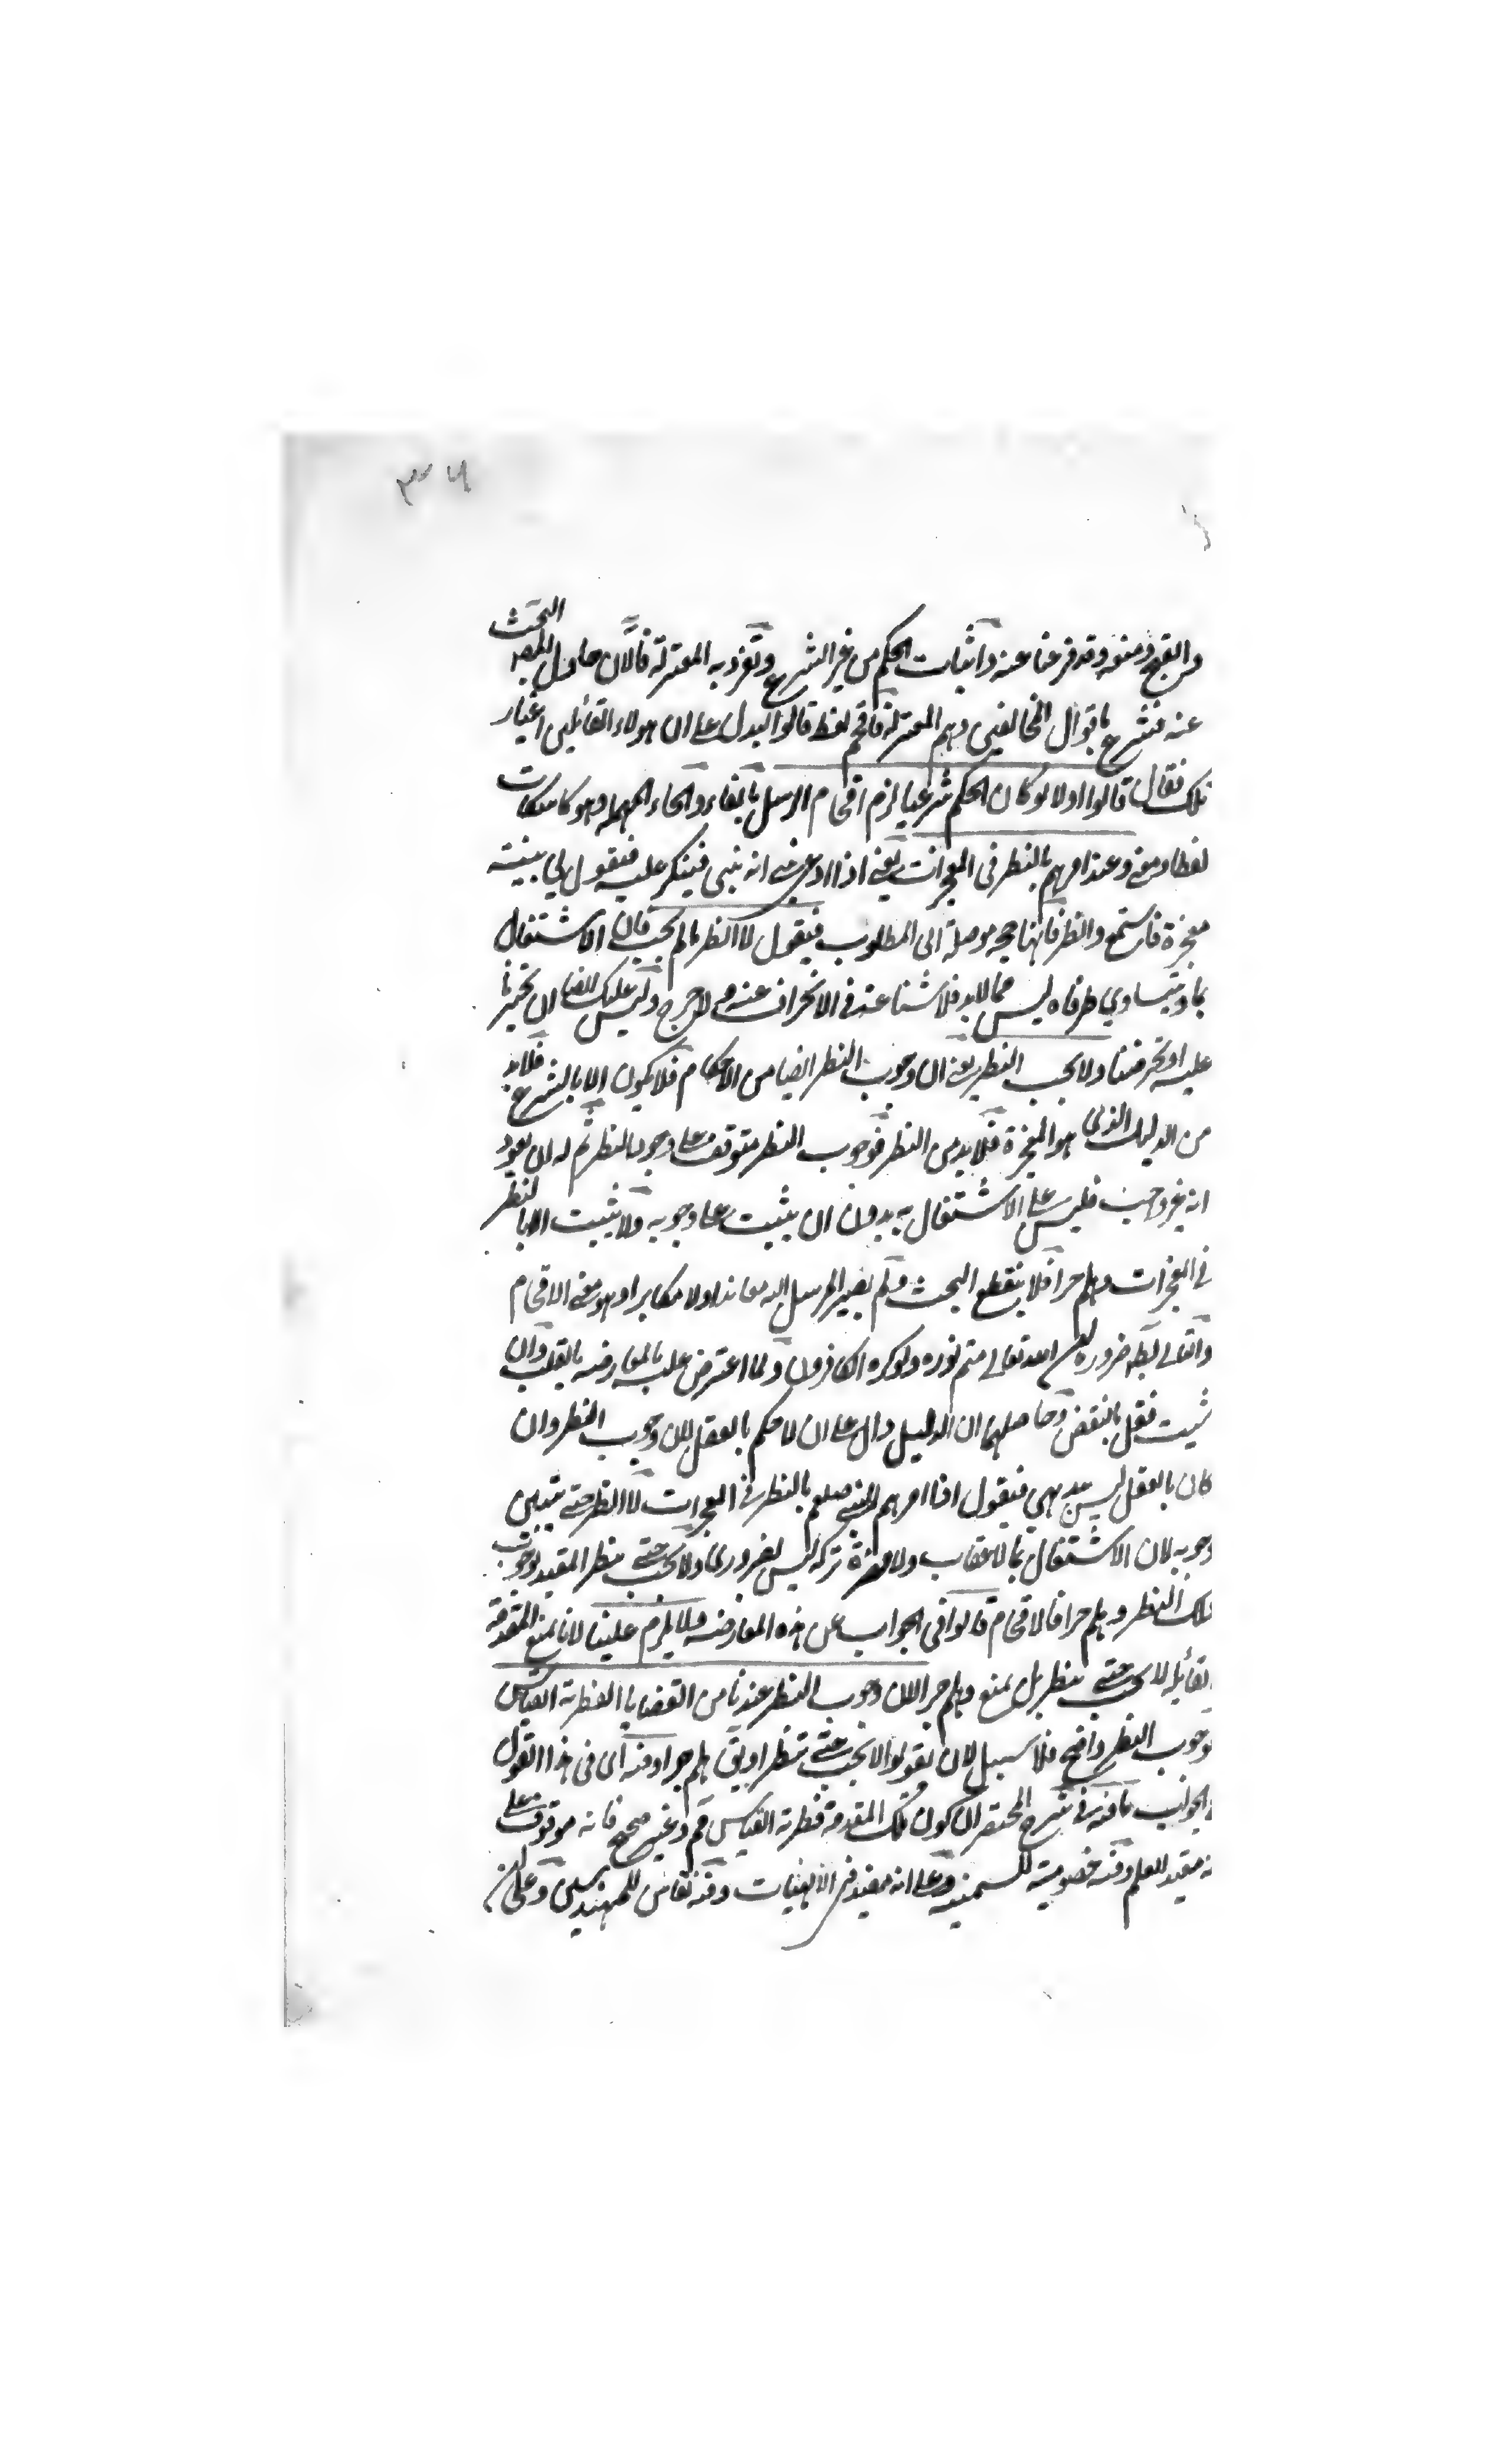 ٣٦
والقبح ومنه وقد فرغنا عنه واثبات الحكم من غير الشرع وتفرد به المعتزلة فالآن حاول المصـ البحث
عنه فشرع باقوال المخالفين وهم المعتزلة فاقحم لفظ قالوا ليدل على ان هولاء القائلين اغيار
تلك فقال قالوا اولا لو كان الحكم شرعيا لزم افحام الرسل بالفاء والحاء المهملة وهو كاسكات
لفظا ومعنى وعند امرهم بالنظر فى المعجزات يعني اذا ادعى انه نبي فينكر عليه فيقول لي بينته
معجزة فاستمع وانظر فانها حجة موصلة الى المطلوب فيقول لا انظر ما لم يجب فان الاشتغال
بما يتساوى طرفاه ليس مما لابد فلا شناعة في الانحراف عنه ولا حرج وليس عليك ايضا ان تجبرنا
عليه او تحرضنا ولا يجب النظر يعني ان وجوب النظر ايضا من الاحكام فلا يكون الا بالشرع فلابد
من الدليل الذي هو المعجزة فلا بد من النظر فوجوب النظر متوقف على وجوب النظر ثم له ان يعود
انه غير واجب فليس علي الاشتغال به بدون ان يثبت على وجوبه ولا يثبت الا بالنظر
في المعجزات وهلم جرا فلا ينقطع البحث ولم يصير المرسل اليه معاندا ولا مكابرا وهو معنى الافحام
والتالي باطل ضرورة ان الله تعالى متم نوره ولو كره الكافرون ولما اعترض عليه بالمعارضه بالقلب وان
شيت فقل بالنقض وحاصلهما ان الدليل دال على ان لا حكم بالعقل لان وجوب النظر وان
كان بالعقل ليس ببديهي فيقول اذا امرهم النبي صلعم بالنظر في المعجزات لا انظر حتى يتبين
وجوبه لان الاشتغال بما لا عقاب ولا مضرة تركه ليس بضروري ولا يجب حتى ينظر المفيد لوجوب
تلك النظر وهلم جرا فالافحام قالوا في الجواب عن هذه المعارضة ولا يلزم علينا لانا نمنع المقدمة
القائلة لا يجب حتى ينظر بل نمنع وهلم جرا لان وجوب النظر عندنا من القضايا الفطرية القياس
لوجوب النظر واضح فلا سبيل لان يقولوا لا يجب حتى ننظر او يق هلم جرا وفيه اى في هذا القول
الجواب ما فيه في شرح المختصر ان كون تلك المقدمة فطرية القياس قم وغير صحيح فانه موقوف على
انه مفيد للعلم وفيه خصومية للسمنية وعلى انه مفيد في الالهيات وفيه نقاش للمهندسين وعلى ان